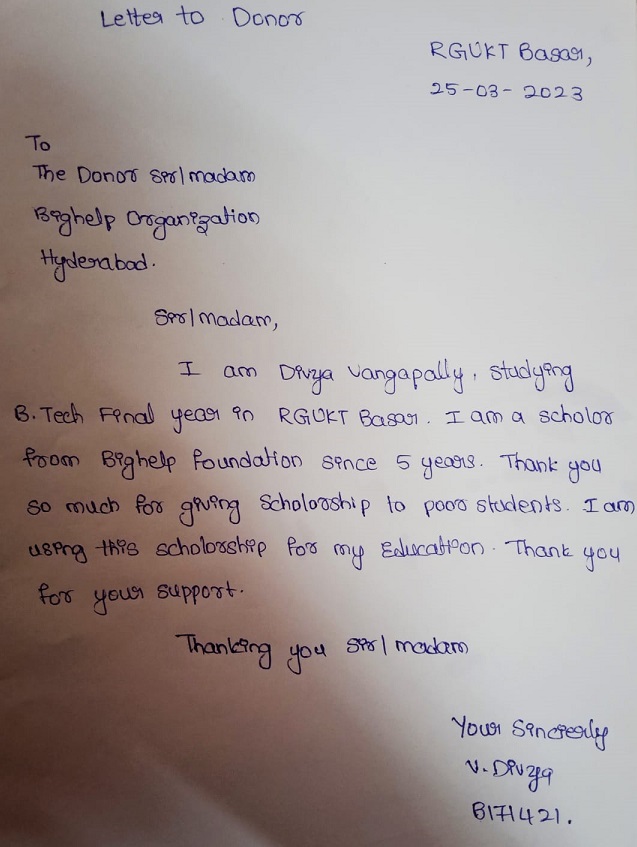 Letter to Donor
RGUKT Basar,
25-03-2023
To
The Donor Sir/madam
Bighelp Organization
Hyderabad.
Sir/madam,
I am Divya Vangapally, studying
B.Tech Final year in RGUKT Basar. I am a scholor
from Bighelp foundation since 5 years. Thank you
so much for giving Scholorship to poor students. I am
using this scholorship for my Education. Thank you
for your support.
Thanking you Sir/madam
Your Sincerely
V. Divya
B171421.